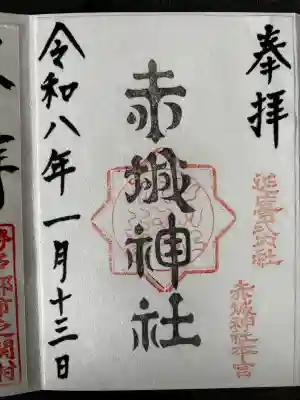 奉拝
延喜式内社
赤城神社本宮
赤城神社
令和八年一月十三日
拝